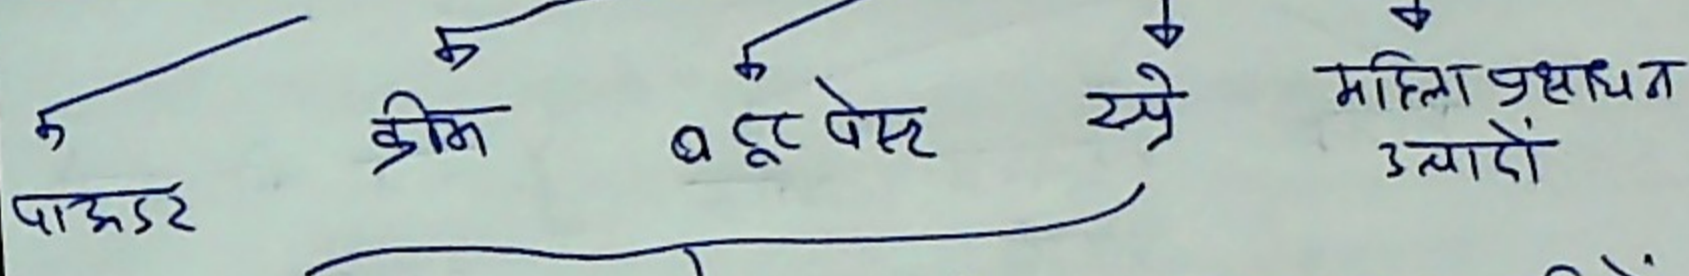 पाऊडर
क्रीम
व टूट पेस्ट
स्प्रे
महिला प्रसाधन
उत्पादों